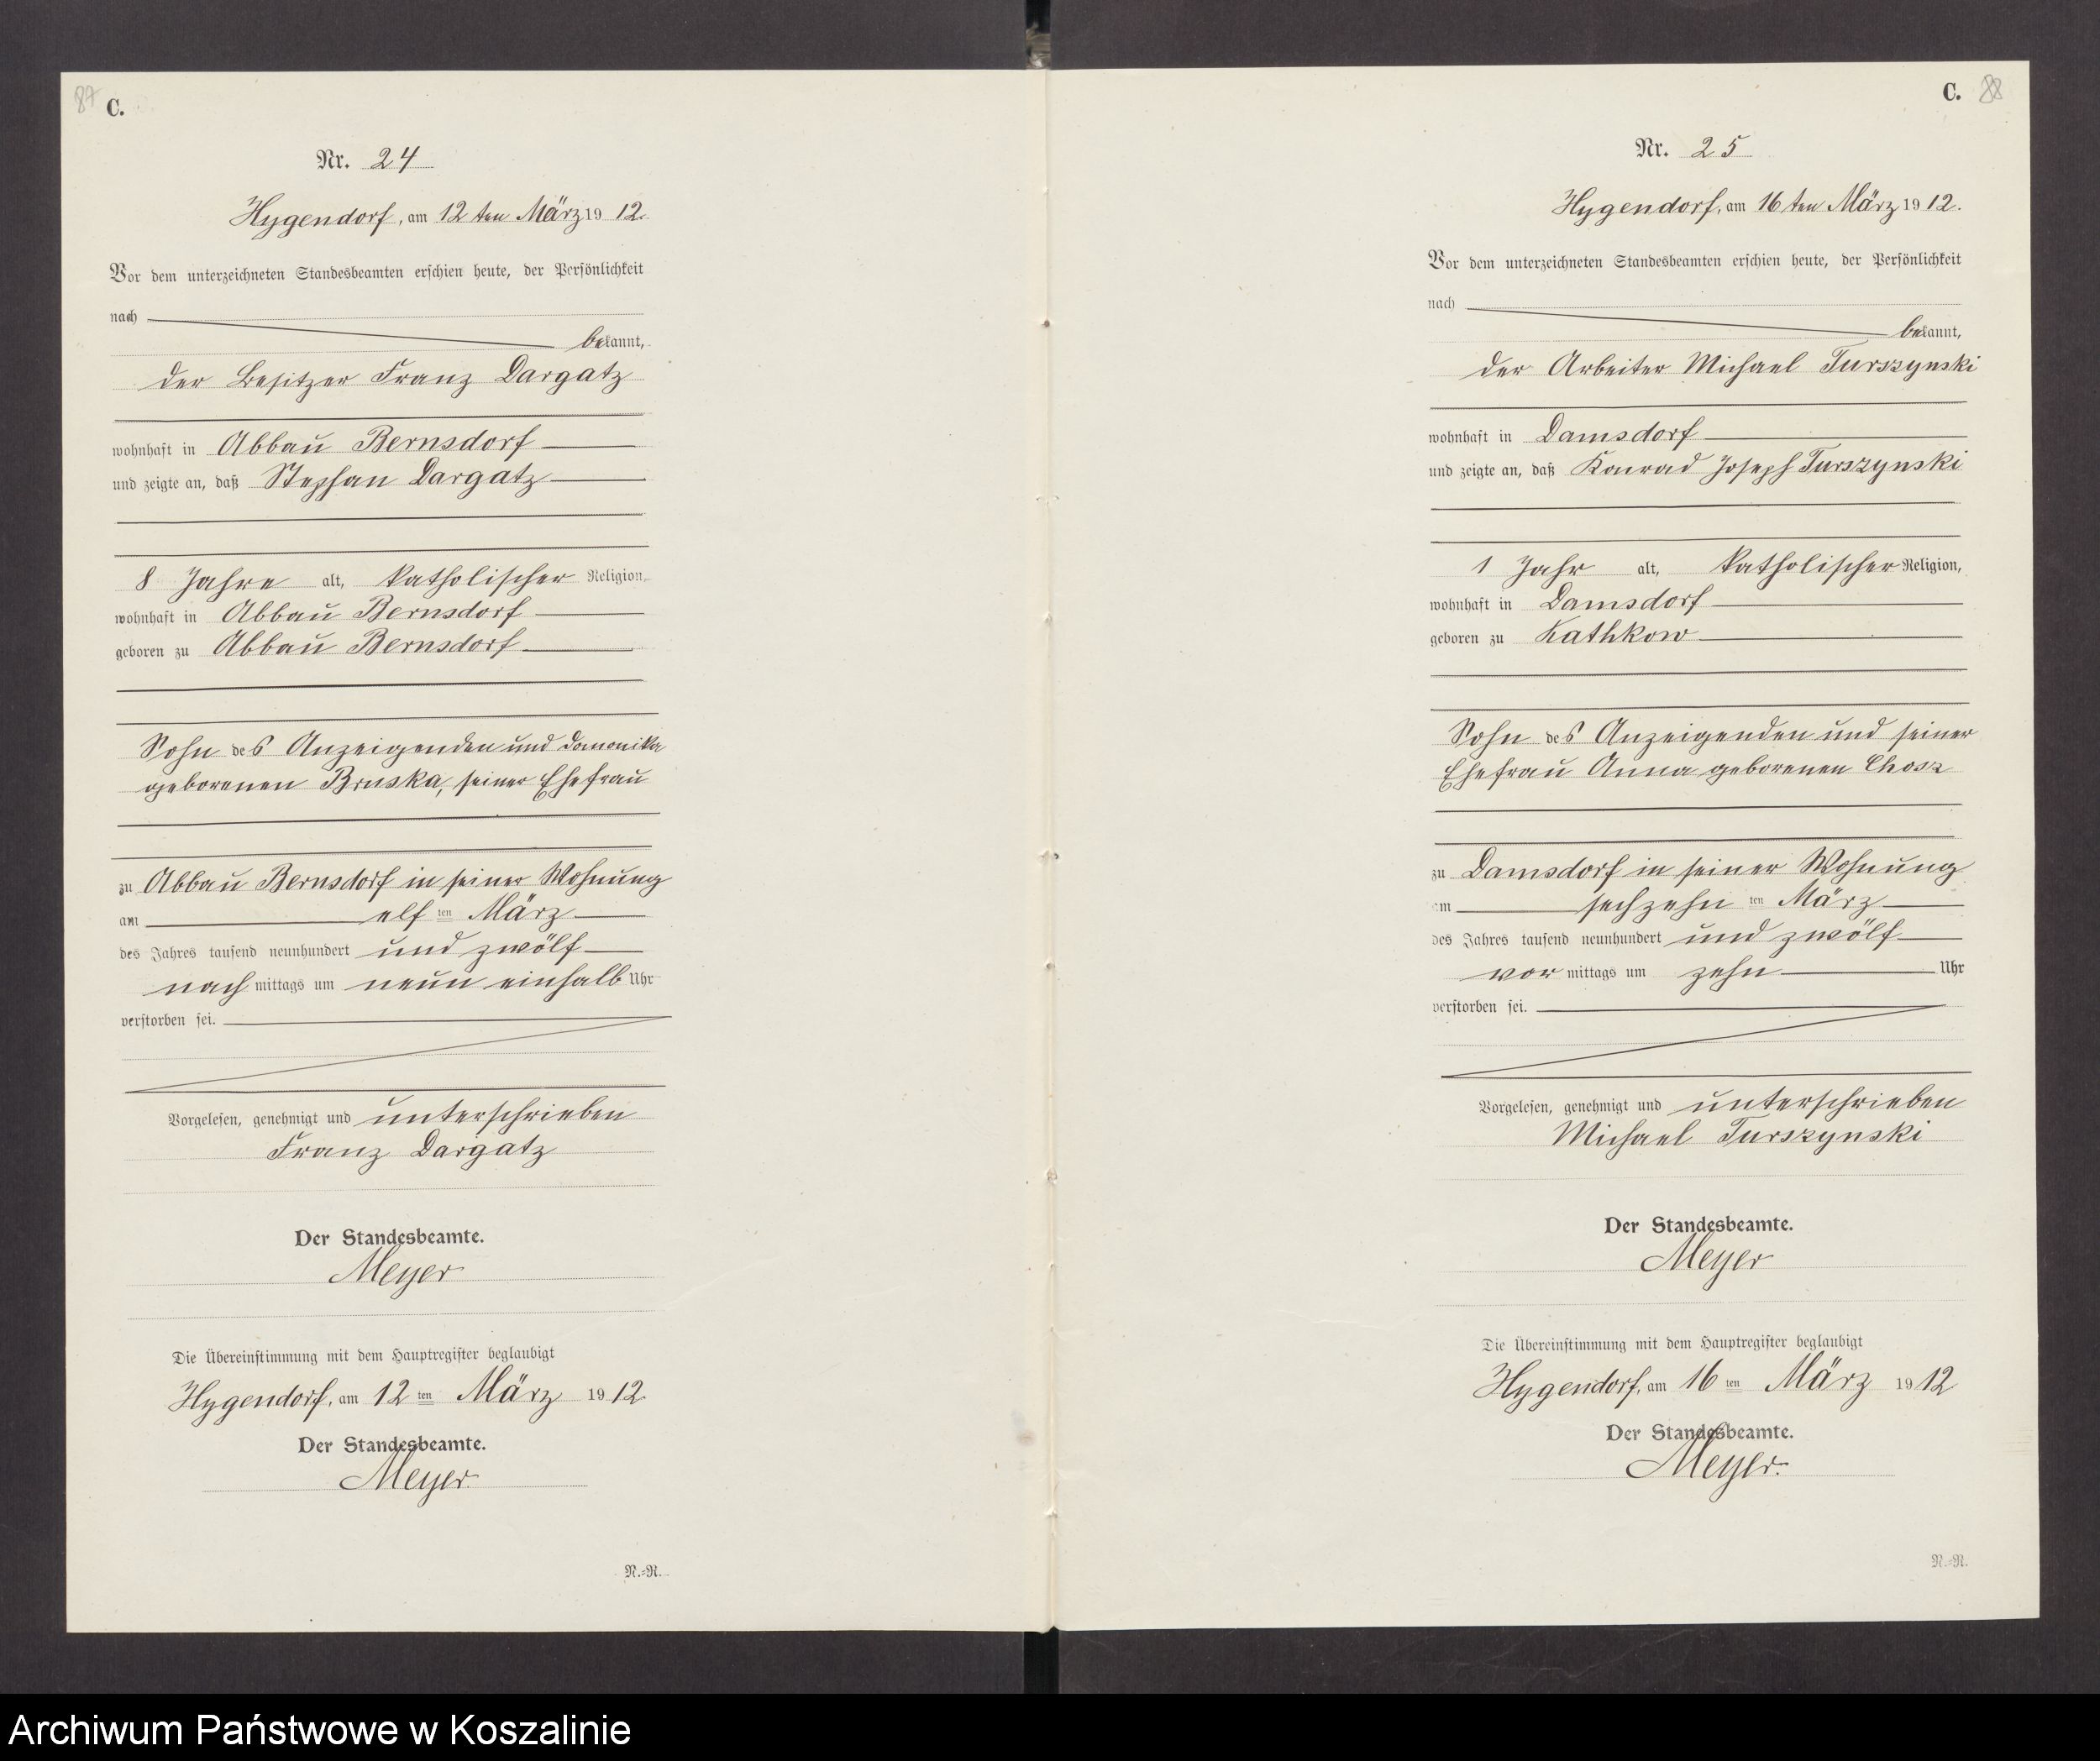 87 C.
Nr. 24
Hygendorf, am 12 ten März 1912.
Vor dem unterzeichneten Standesbeamten erschien heute, der Persönlichkeit
nach
bekannt,
der Besitzer Franz Dargatz
wohnhaft in Abbau Bernsdorf
und zeigte an, daß Stephan Dargatz
8 Jahre alt, katholischer Religion,
wohnhaft in Abbau Bernsdorf
geboren zu Abbau Bernsdorf
Sohn des Anzeigenden und Domonika
geborenen Bruska, seiner Ehefrau
zu Abbau Bernsdorf in seiner Wohnung
am elf ten März
des Jahres tausend neunhundert und zwölf
nach mittags um neun einhalb Uhr
verstorben sei.
Vorgelesen, genehmigt und unterschrieben
Franz Dargatz
Der Standesbeamte.
Meyer
Die Übereinstimmung mit dem Hauptregister beglaubigt
Hygendorf, am 12 ten März 1912.
Der Standesbeamte.
Meyer.
N.=R.
C. 88
Nr. 25
Hygendorf, am 16 ten März 1912.
Vor dem unterzeichneten Standesbeamten erschien heute, der Persönlichkeit
nach
bekannt,
der Arbeiter Michael Turszynski
wohnhaft in Damsdorf
und zeigte an, daß Konrad Joseph Turszynski
1 Jahr alt, katholischer Religion,
wohnhaft in Damsdorf
geboren zu Kathkow
Sohn des Anzeigenden und seiner
Ehefrau Anna geborenen Chosz
zu Damsdorf in seiner Wohnung
am sechzehn ten März
des Jahres tausend neunhundert und zwölf
vor mittags um zehn Uhr
verstorben sei.
Vorgelesen, genehmigt und unterschrieben
Michael Turszynski
Der Standesbeamte.
Meyer
Die Übereinstimmung mit dem Hauptregister beglaubigt
Hygendorf, am 16 ten März 1912
Der Standesbeamte.
Meyer.
N.=R.
Archiwum Państwowe w Koszalinie